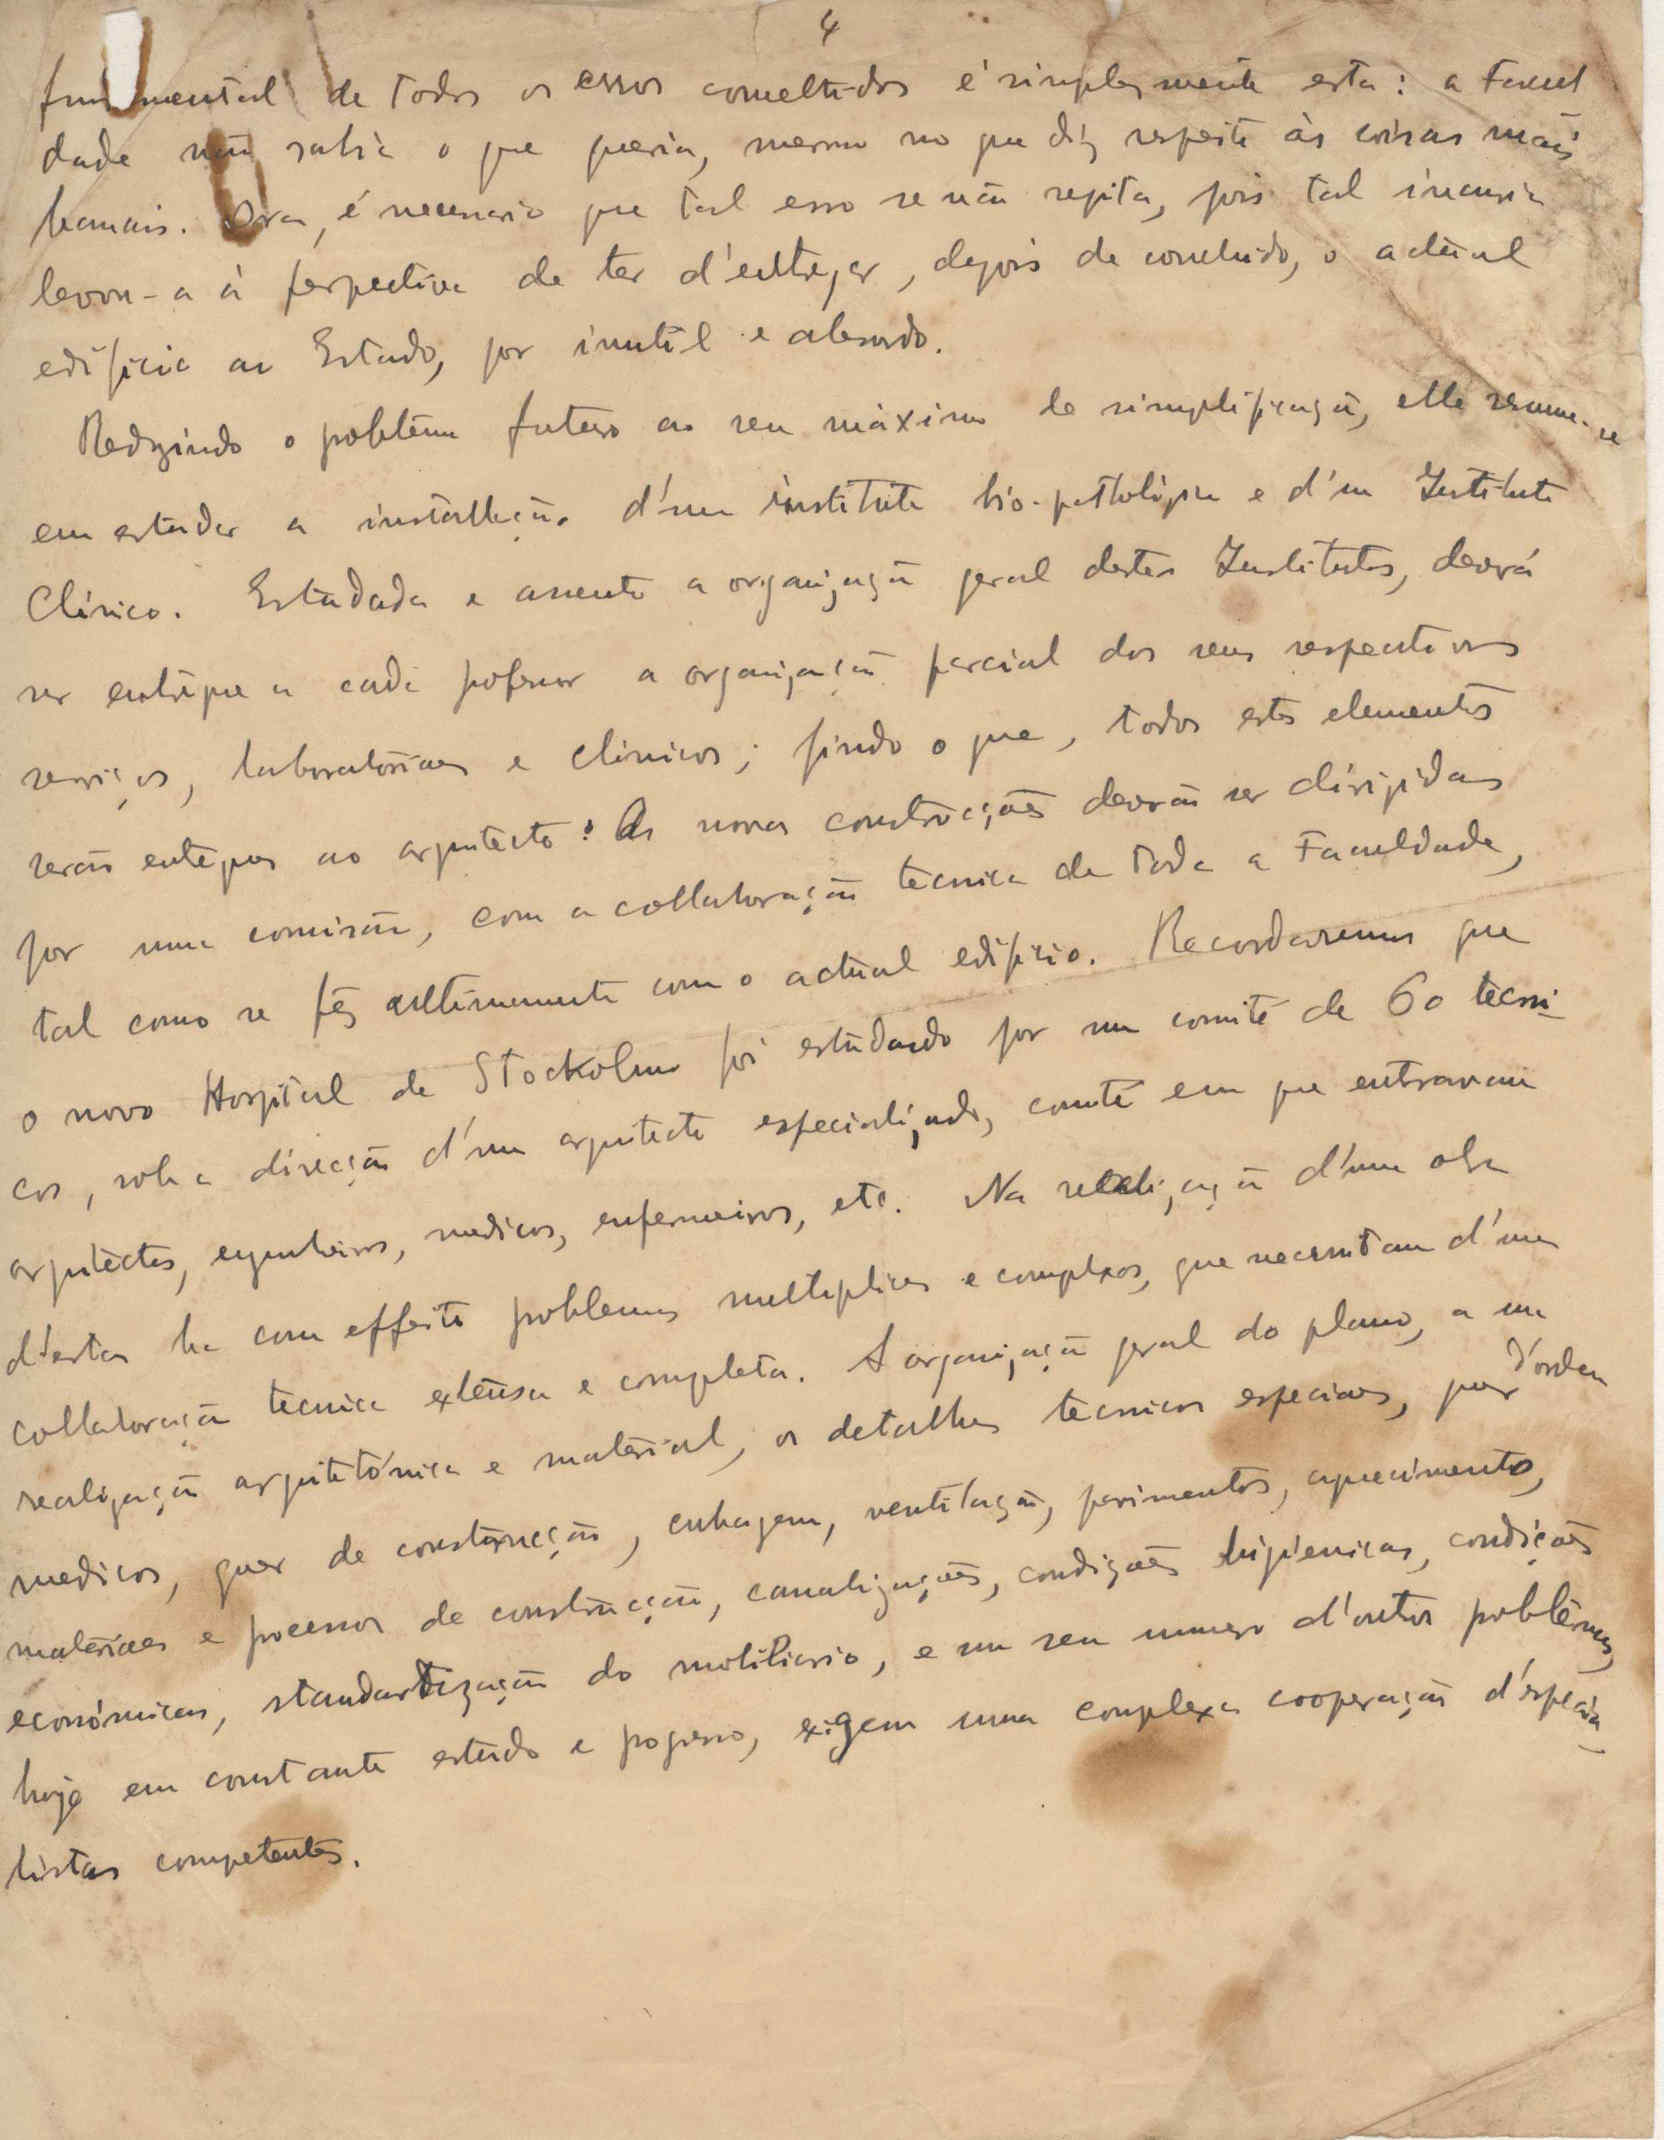 4
fundamental de todos os erros comettidos é simplesmente esta: a Facul
dade não sabia o que queria, mesmo no que diz respeito ás coisas mais
banais. Ora, é necessario que tal erro se não repita, pois tal incuria
levou-a á perpectiva de ter d'entregar, depois de concluido, o actual
edificio ao Estado, por inutil e absurdo.
Reduzindo o problema futuro ao seu máximo de simplificação, elle resume-se
em estudar a installação d'um instituto bio-pathologico e d'um Instituto
Clinico. Estudada e assente a organização geral destes Institutos, deverá
ser entregue a cada professor a organização parcial dos seus respectivos
serviços, laboratoriaes e clinicos; findo o que, todos estes elementos
serão entregues ao arquitecto. As novas construcções deverão ser dirigidas
por uma comissão, com a collaboração tecnica de toda a Faculdade,
tal como se fez ultimamente com o actual edificio. Recordaremos que
o novo Hospital de Stockolmo foi estudado por um comité de 60 tecni-
cos, sob a direcção d'um arquitecto especializado, comité em que entravam
arquitectos, engenheiros, medicos, enfermeiros, etc. Na realização d'uma obra
d'estas ha com effeito problemas multiplices e complexos, que necessitam d'uma
collaboração tecnica extensa e completa. A organização geral do plano, a sua
realização arquitetónica e material, os detalhes tecnicos especiaes, quer d'ordem
medicos, quer de construcção, cubagem, ventilação, pavimentos, aquecimento,
materiaes e processos de construcção, canalizações, condições higienicas, condições
económicas, standartização do mobiliario, e um seu numero d'outros problemas,
hoje em constante estudo e progresso, exigem uma complexa cooperação d'especia-
listas competentes.